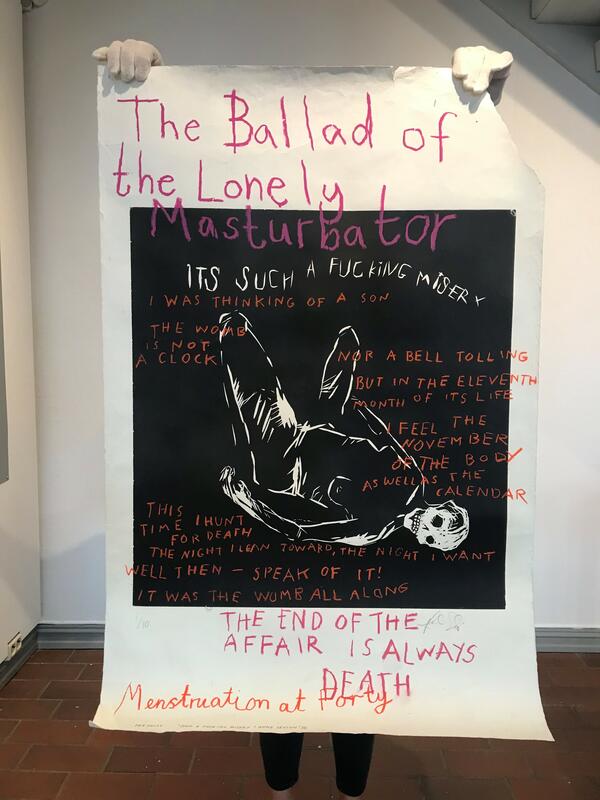 The Ballad of
the Lonely
Masturbator
ITS SUCH A FUCKING MISERY
I WAS THINKING OF A SON
THE WOMB
IS NOT
A CLOCK
NOR A BELL TOLLING
BUT IN THE ELEVENTH
MONTH OF ITS LIFE
I FEEL THE
NOVEMBER
OF THE BODY
AS WELL AS THE
CALENDAR
THIS
TIME I HUNT
FOR DEATH
THE NIGHT I LEAN TOWARD, THE NIGHT I WANT
WELL THEN – SPEAK OF IT!
IT WAS THE WOMB ALL ALONG
1/10
THE END OF THE
AFFAIR IS ALWAYS
DEATH
Menstruation at Forty